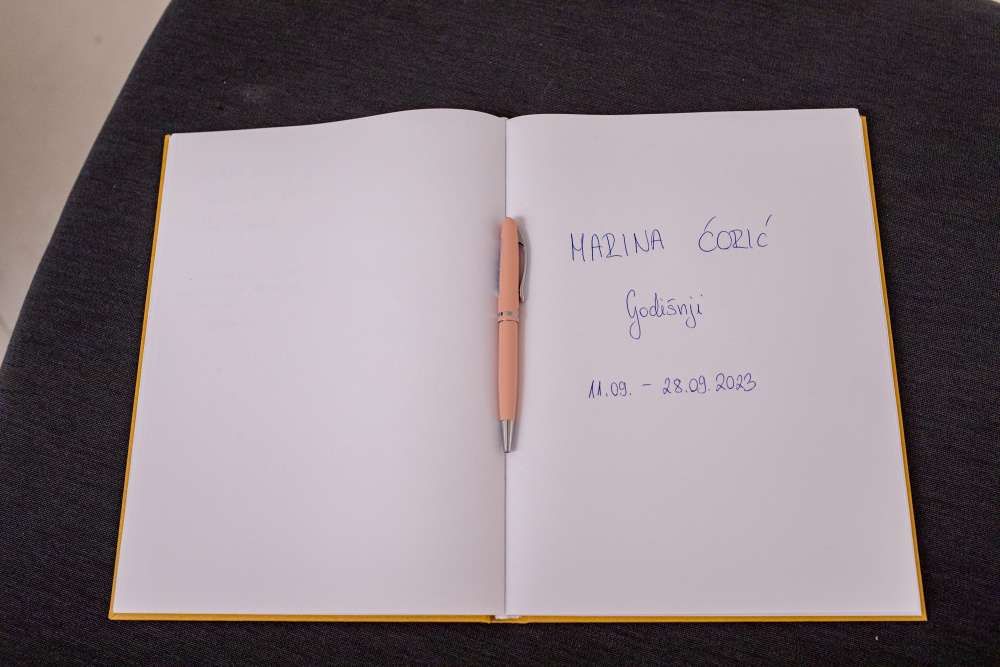 MARINA ĆORIĆ
Godišnji
11.09. – 28.09.2023